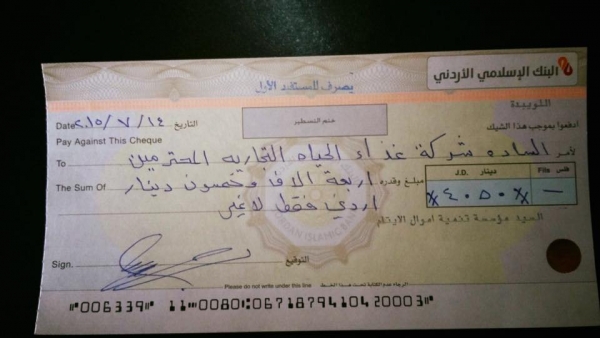 البنك الإسلامي الأردني
يصرف للمستفيد الأول
اللويبدة
ختم التسطير
Date ٢٠١٥/٧/١٤ التاريخ
ادفعوا بموجب هذا الشيك
Pay Against This Cheque
To الساده شركة غذاء الحياه التجاريه المحترمين لأمر
The Sum Of اربعة الاف وخمسون دينار مبلغ وقدره
اردني فقط لا غير
J.D. دينار Fils فلس
x٤٠٥٠x —
السيد مؤسسة تنمية اموال الايتام
Sign. التوقيع
Please do not write under this line الرجاء عدم الكتابة تحت هذا الخط
⑈006339⑈ 11⑈0080⑆067187941042 0003⑈